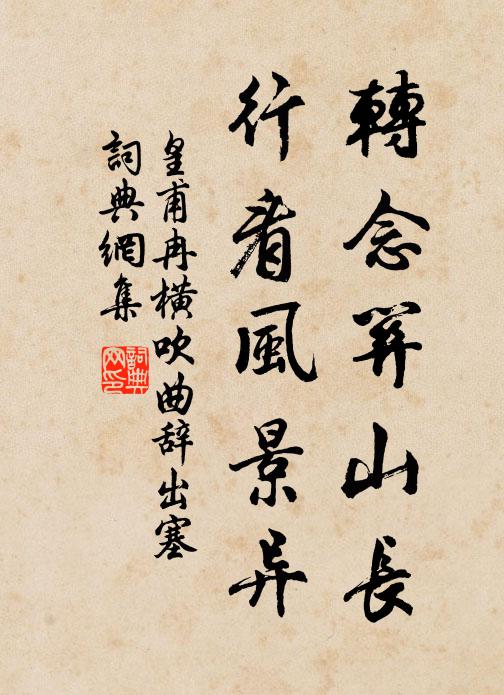 轉念關山長
行看風景异
皇甫冉橫吹曲辞出塞
詞典網集
詞典
网印